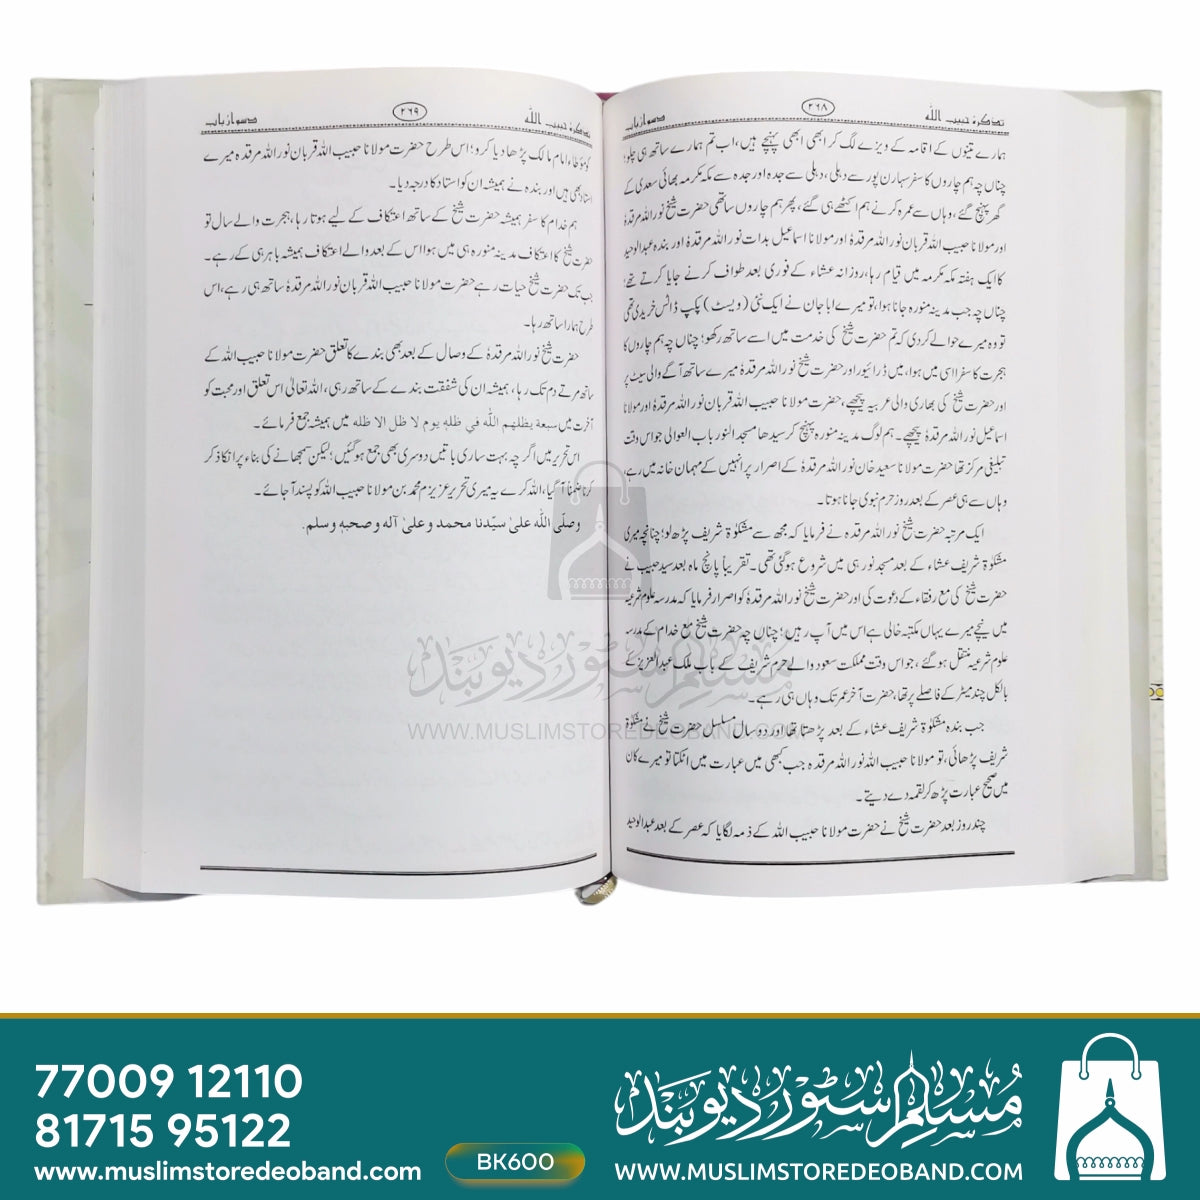 تذکرۂ حبیب اللہ
۲۶۸
دسواں باب
ہمارے تینوں کے اقامہ کے ویزے لگ کر ابھی ابھی پہنچے ہیں، اب تم ہمارے ساتھ ہی چلو؛
چناں چہ ہم چاروں کا سفر سہارن پور سے دہلی، دہلی سے جدہ اور جدہ سے مکہ مکرمہ بھائی سعدی کے
گھر پہنچ گئے، وہاں سے عمرہ کرنے ہم اکٹھے ہی گئے، پھر ہم چاروں ساتھی حضرت شیخ نور اللہ مرقدہٗ
اور مولانا حبیب اللہ قربان نور اللہ مرقدہٗ اور مولانا اسماعیل بدات نور اللہ مرقدہٗ اور بندہ عبدالوحید
کا ایک ہفتہ مکہ مکرمہ میں قیام رہا، روزانہ عشاء کے فوری بعد طواف کرنے جایا کرتے تھے؛
چناں چہ جب مدینہ منورہ جانا ہوا، تو میرے ابا جان نے ایک نئی (ویسٹ) پکپ ڈاٹس خریدی تھی
تو وہ میرے حوالے کر دی کہ تم حضرت شیخ کی خدمت میں اسے ساتھ رکھو؛ چناں چہ ہم چاروں کا
ہجرت کا سفر اسی میں ہوا، میں ڈرائیور اور حضرت شیخ نور اللہ مرقدہٗ میرے ساتھ آگے والی سیٹ پر
اور حضرت شیخ کی بھاری والی عربیہ پیچھے، حضرت مولانا حبیب اللہ قربان نور اللہ مرقدہٗ اور مولانا
اسماعیل نور اللہ مرقدہٗ پیچھے۔ ہم لوگ مدینہ منورہ پہنچ کر سیدھا مسجد النور باب العوالی جو اس وقت
تبلیغی مرکز تھا حضرت مولانا سعید خان نور اللہ مرقدہٗ کے اصرار پر انہیں کے مہمان خانہ میں رہے،
وہاں سے ہی عصر کے بعد روز حرم نبوی جانا ہوتا۔
ایک مرتبہ حضرت شیخ نور اللہ مرقدہ نے فرمایا کہ مجھ سے مشکوٰۃ شریف پڑھ لو؛ چنانچہ میری
مشکوٰۃ شریف عشاء کے بعد مسجد نور ہی میں شروع ہوگئی تھی۔ تقریباً پانچ ماہ بعد سید حبیب نے
حضرت شیخ کی مع رفقاء کے دعوت کی اور حضرت شیخ نور اللہ مرقدہٗ کو اصرار فرمایا کہ مدرسہ علوم شرعیہ
میں نیچے میرے یہاں مکتبہ خالی ہے اس میں آپ رہیں؛ چناں چہ حضرت شیخ مع خدام کے مدرسہ
علوم شرعیہ منتقل ہوگئے، جو اس وقت مملکت سعود والے حرم شریف کے باب ملک عبدالعزیز کے
بالکل چند میٹر کے فاصلے پر تھا، حضرت آخر عمر تک وہاں ہی رہے۔
جب بندہ مشکوٰۃ شریف عشاء کے بعد پڑھتا تھا اور دو سال مسلسل حضرت شیخ نے مشکوٰۃ
شریف پڑھائی، تو مولانا حبیب اللہ نور اللہ مرقدہ جب کبھی میں عبارت میں اٹکتا تو میرے کان
میں صحیح عبارت پڑھ کر لقمہ دے دیتے۔
چند روز بعد حضرت شیخ نے حضرت مولانا حبیب اللہ کے ذمہ لگایا کہ عصر کے بعد عبدالوحید
تذکرۂ حبیب اللہ
۲۶۹
دسواں باب
کو مؤطا امام مالک پڑھا دیا کرو؛ اس طرح حضرت مولانا حبیب اللہ قربان نور اللہ مرقدہ میرے
استاد بھی ہیں اور بندہ نے ہمیشہ ان کو استاد کا درجہ دیا۔
ہم خدام کا سفر ہمیشہ حضرت شیخ کے ساتھ اعتکاف کے لیے ہوتا رہا، ہجرت والے سال تو
حضرت شیخ کا اعتکاف مدینہ منورہ ہی میں ہوا اس کے بعد والے اعتکاف ہمیشہ باہر ہی کے رہے۔
جب تک حضرت شیخ حیات رہے حضرت مولانا حبیب اللہ قربان نور اللہ مرقدہٗ ساتھ ہی رہے، اس
طرح ہمارا ساتھ رہا۔
حضرت شیخ نور اللہ مرقدہٗ کے وصال کے بعد بھی بندے کا تعلق حضرت مولانا حبیب اللہ کے
ساتھ مرتے دم تک رہا، ہمیشہ ان کی شفقت بندے کے ساتھ رہی، اللہ تعالیٰ اس تعلق اور محبت کو
آخرت میں سبعة يظلهم الله في ظله يوم لا ظل الا ظله میں ہمیشہ جمع فرمائے۔
اس تحریر میں اگرچہ بہت ساری باتیں دوسری بھی جمع ہوگئیں؛ لیکن سمجھانے کی بناء پر ان کا ذکر
کرنا ضمناً آ گیا، اللہ کرے یہ میری تحریر عزیزم محمد بن مولانا حبیب اللہ کو پسند آ جائے۔
وصلّى اللّٰه علىٰ سيّدنا محمد وعلىٰ آله وصحبه وسلم.
مسلم سٹور دیوبند
WWW.MUSLIMSTOREDEOBAND.COM
77009 12110
81715 95122
www.muslimstoredeoband.com
BK600
مسلم سٹور دیوبند
WWW.MUSLIMSTOREDEOBAND.COM